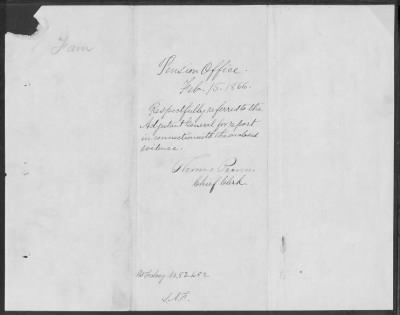 Fam
Pension Office.
Feb. 15. 1866.
Respectfully referred to the
Adjutant General for report
in connection with the enclosed
evidence.
Chief Clerk
52.452